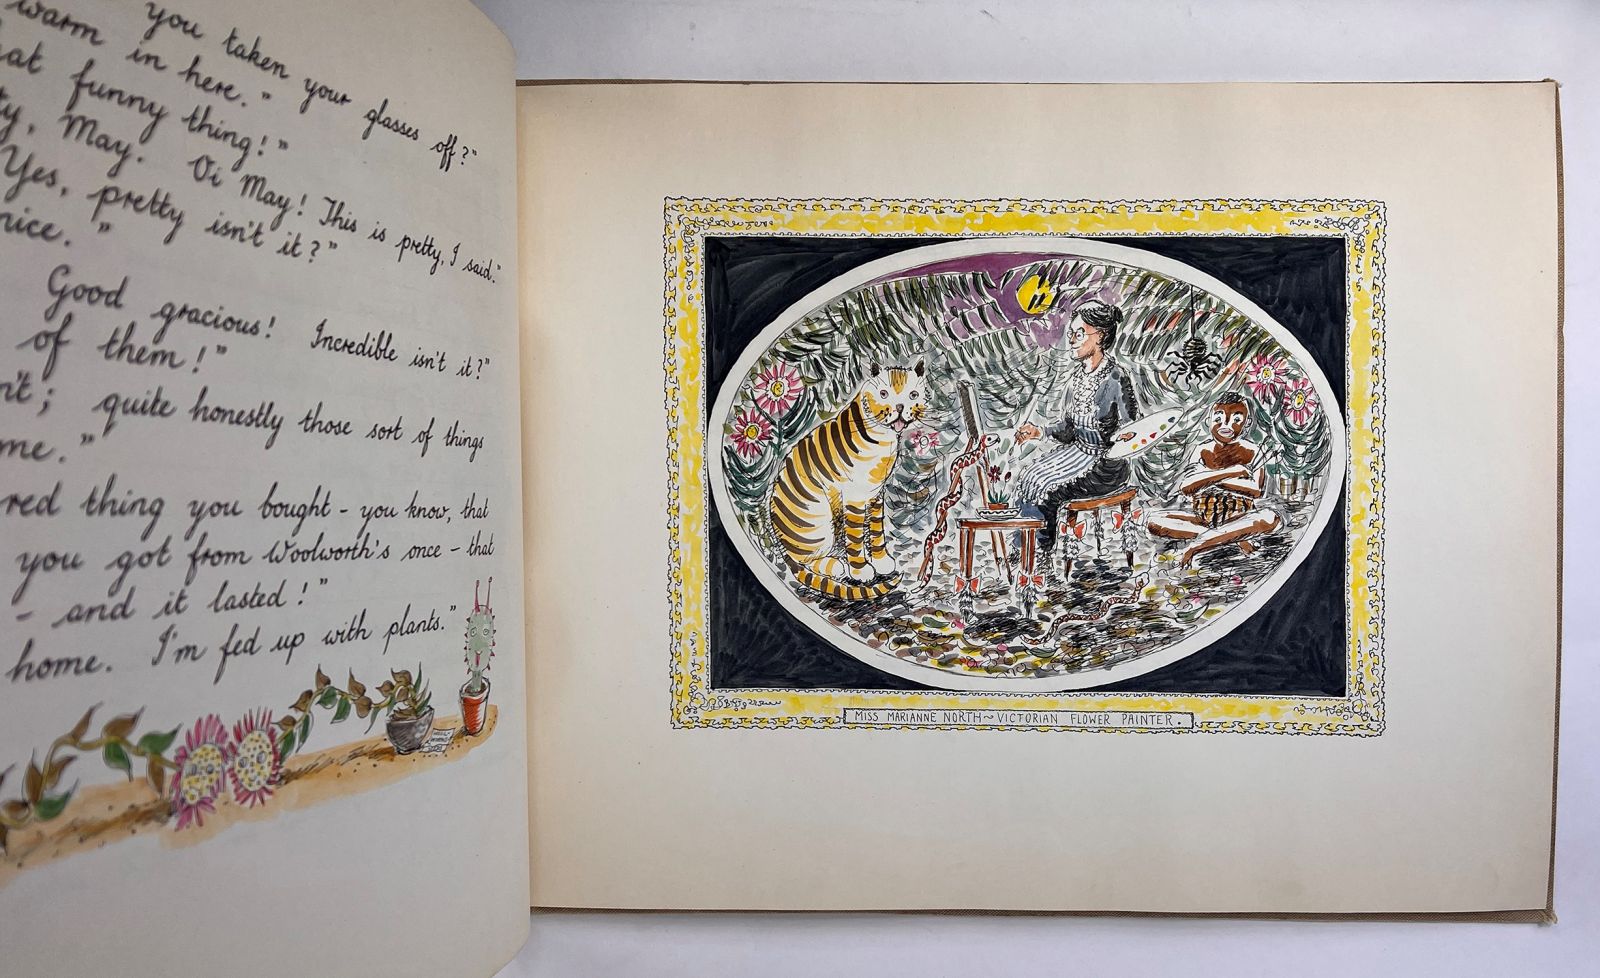 you taken your glasses off?"
warm in here."
at funny thing!"
ty, May. Oi May! This is pretty, I said."
Yes, pretty isn't it?"
nice."
Good gracious! Incredible isn't it?"
of them!"
n't; quite honestly those sort of things
me."
red thing you bought - you know, that
you got from Woolworth's once - that
- and it lasted!"
home. I'm fed up with plants."
MISS MARIANNE NORTH ~ VICTORIAN FLOWER PAINTER.